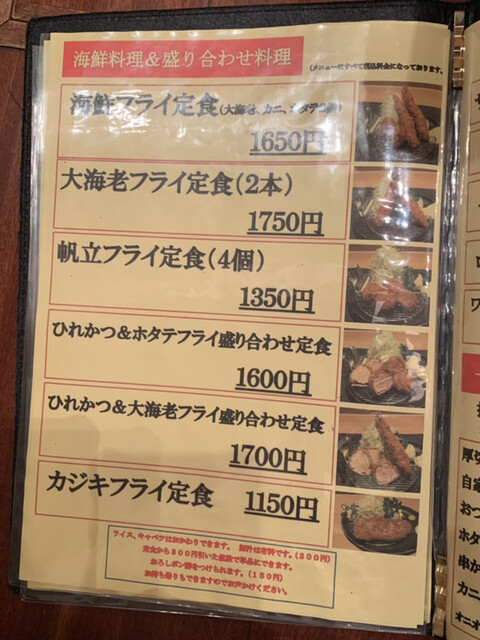 海鮮料理&盛り合わせ料理
(メニューはすべて税込料金になっております。
海鮮フライ定食(大海老、カニ、ホタテ2個)
1650円
大海老フライ定食(2本)
1750円
帆立フライ定食(4個)
1350円
ひれかつ&ホタテフライ盛り合わせ定食
1600円
ひれかつ&大海老フライ盛り合わせ定食
1700円
カジキフライ定食 1150円
ライス、キャベツはおかわりできます。 豚汁は有料です。(200円)
定食から300円引いた値段で単品にできます。
おろしポン酢をつけられます。(150円)
お持ち帰りもできますのでお声かけください。
厚切
自家
おつ
ホタ
串か
カニ
オニオ